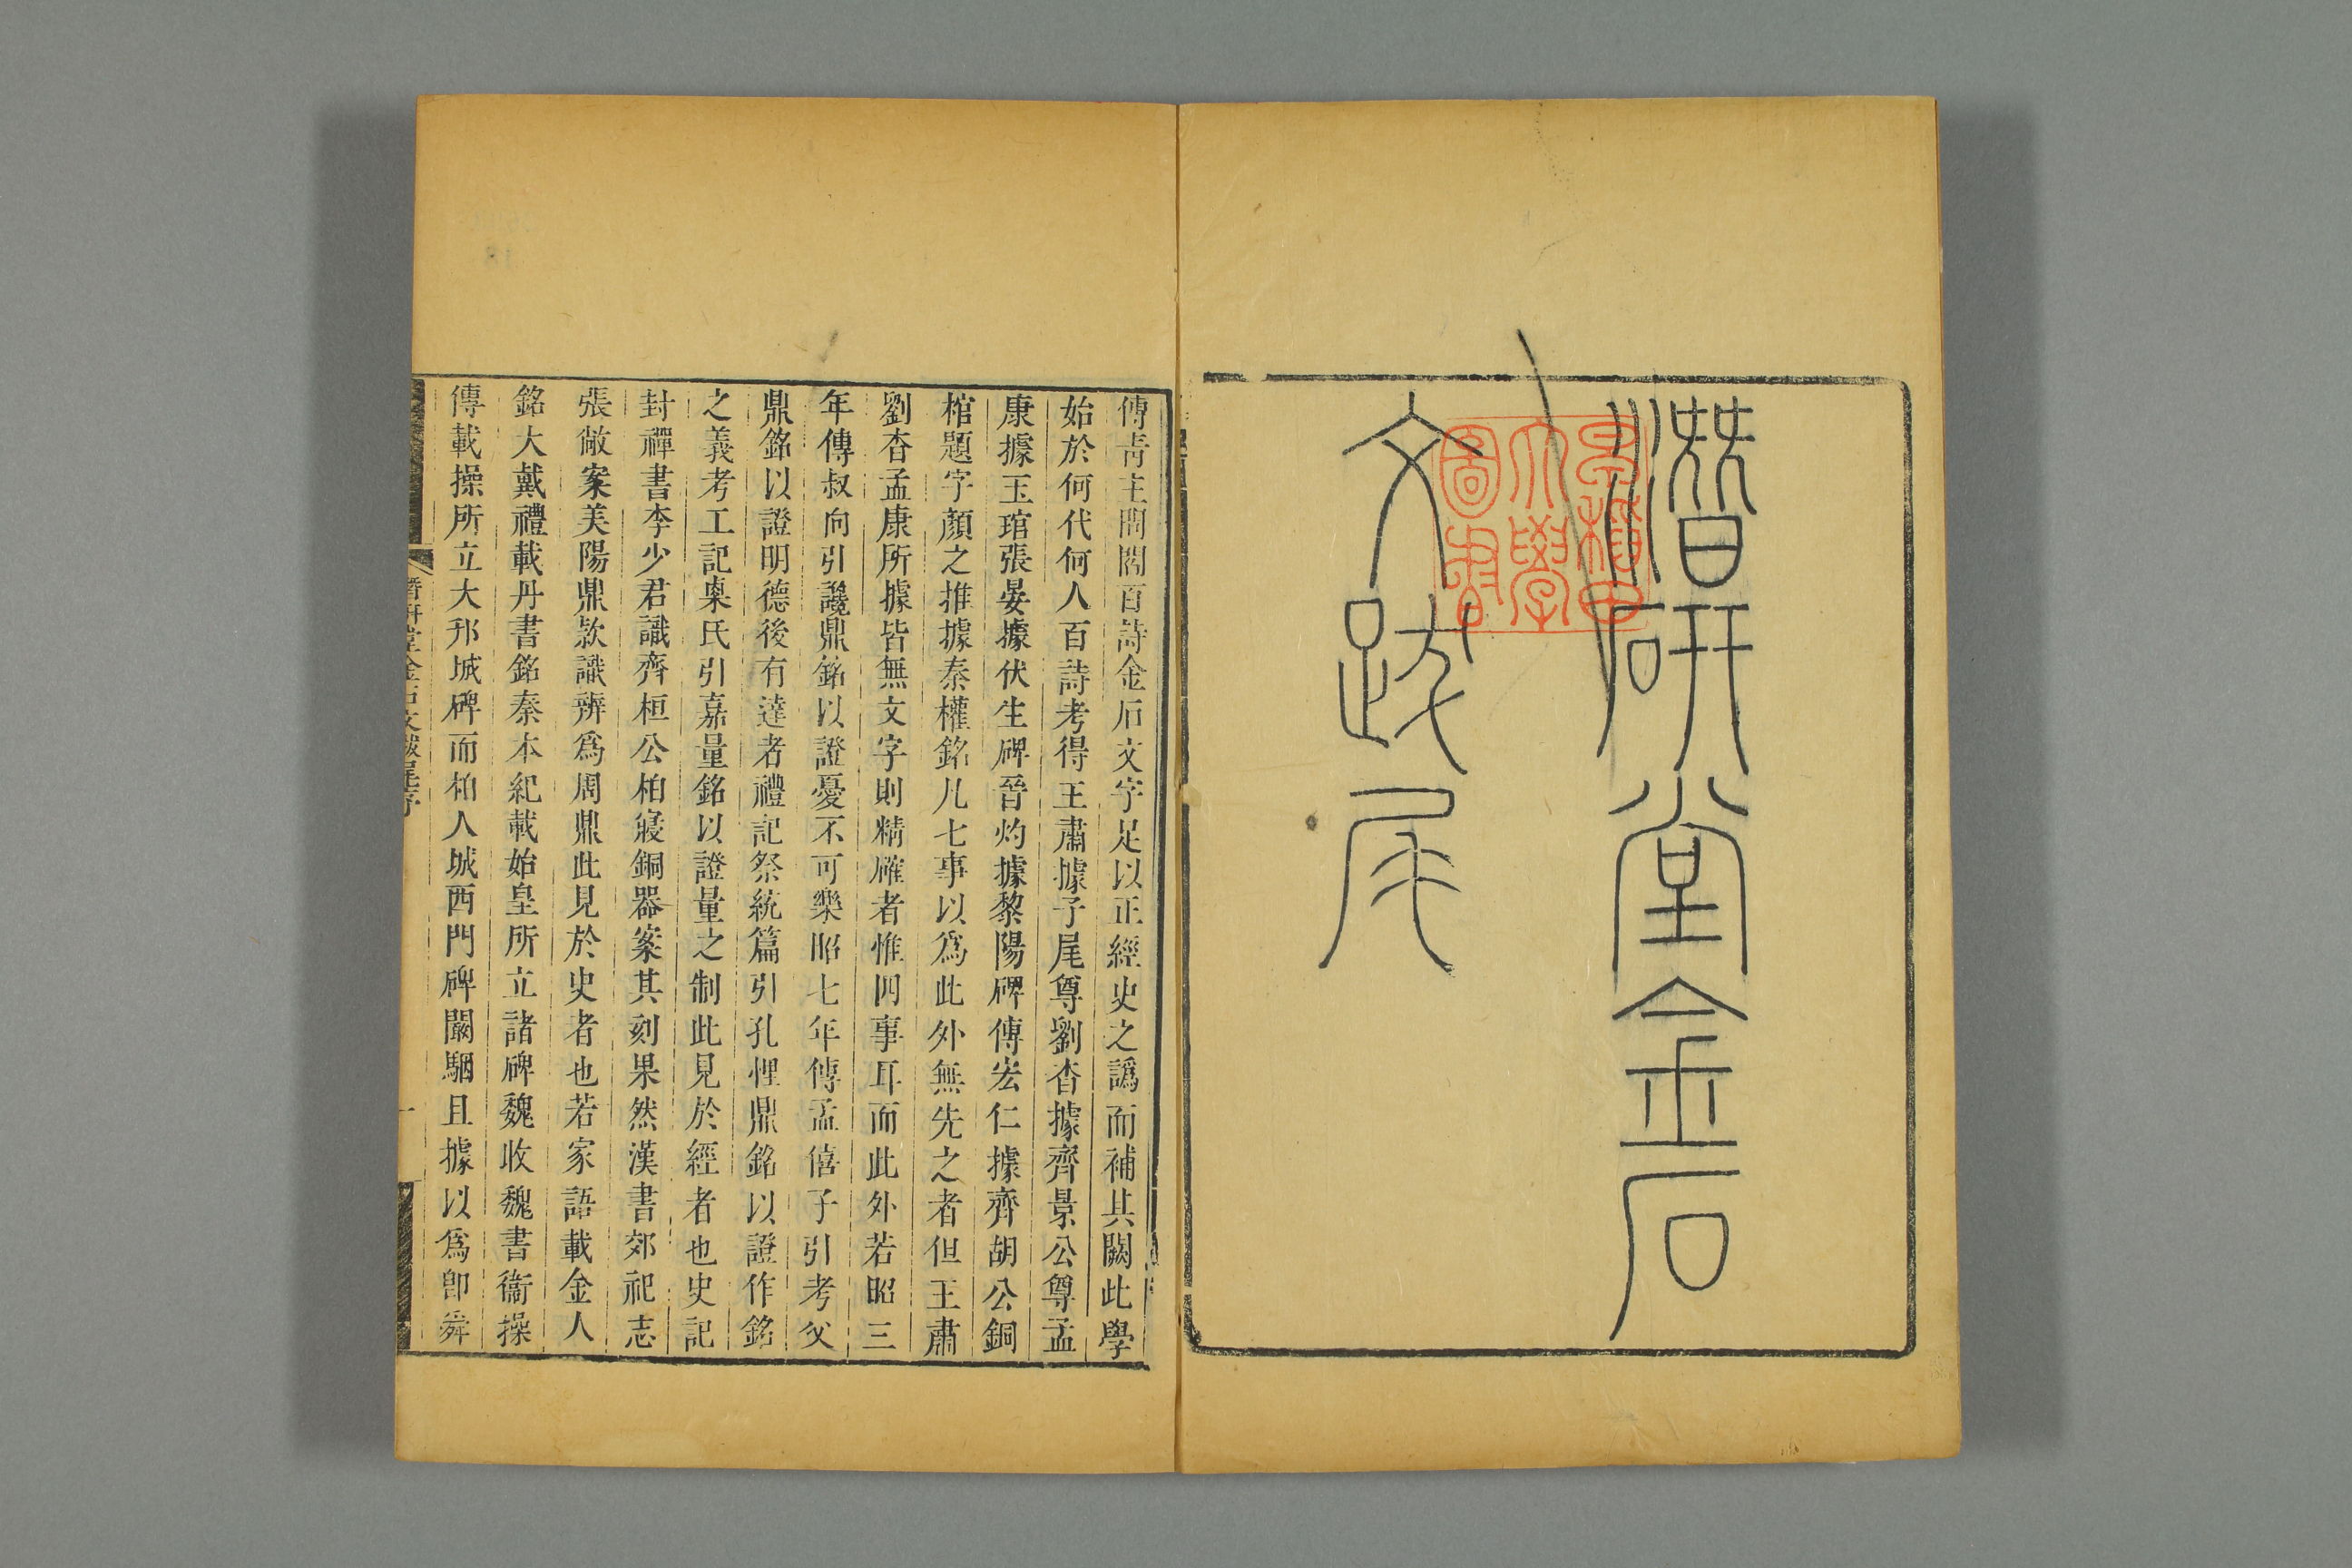 潛研堂金石
文跋尾
早稲田
大學
圖書
傅青主問閻百詩金石文字足以正經史之譌而補其闕此學
始於何代何人百詩考得王肅據子尾尊劉杳據齊景公尊孟
康據玉琯張晏據伏生碑晉灼據黎陽碑傅宏仁據齊胡公銅
棺題字顏之推據秦權銘凡七事以爲此外無先之者但王肅
劉杳孟康所據皆無文字則精確者惟四事耳而此外若昭三
年傳叔向引讒鼎銘以證憂不可樂昭七年傳孟僖子引考父
鼎銘以證明德後有達者禮記祭統篇引孔悝鼎銘以證作銘
之義考工記㮚氏引嘉量銘以證量之制此見於經者也史記
封禪書李少君識齊桓公柏寢銅器案其刻果然漢書郊祀志
張敞案美陽鼎款識辨爲周鼎此見於史者也若家語載金人
銘大戴禮載丹書銘秦本紀載始皇所立諸碑魏收魏書衞操
傳載操所立大邗城碑而柏人城西門碑闞駰且據以爲卽舜
潛研堂金石文跋尾序
一